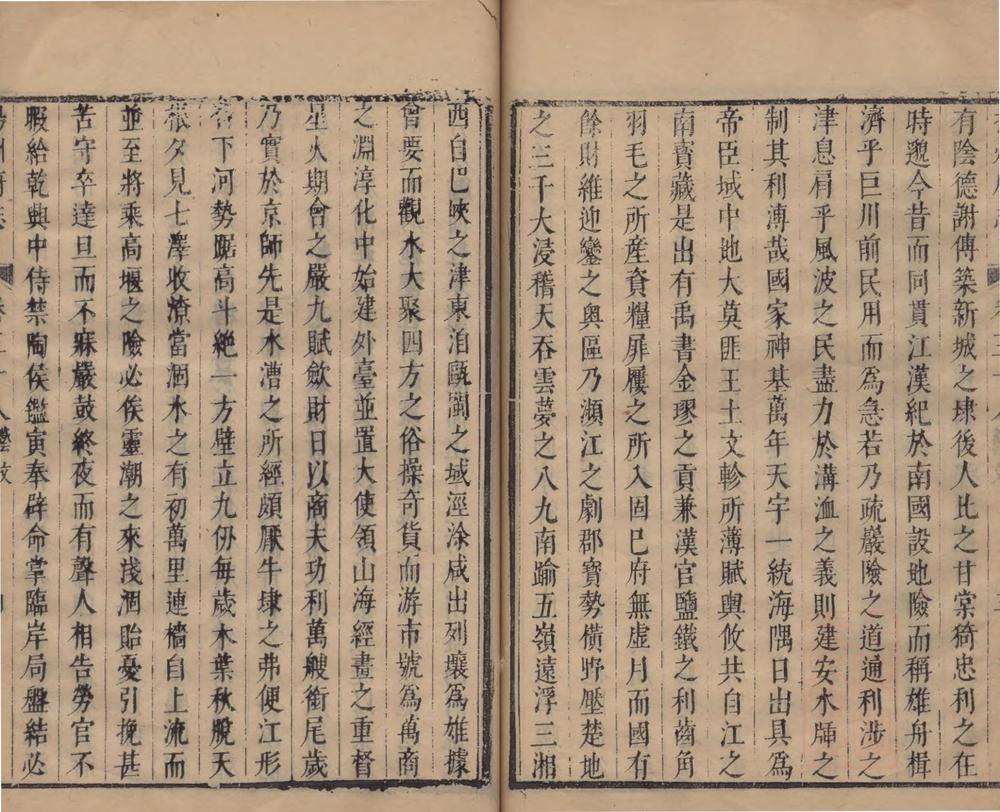 有陰德謝傅築新城之埭後人比之甘棠猗忠利之在
時邈今昔而同貫江漢紀於南國設地險而稱雄舟楫
濟乎巨川前民用而爲急若乃疏巖險之道通利涉之
津息肩乎風波之民盡力於溝洫之義則建安水牐之
制其利溥哉國家神基萬年天宇一統海隅日出具爲
帝臣域中地大莫匪王土文軫所薄賦輿攸共自江之
南寳藏是出有禹書金璆之貢兼漢官鹽鐵之利齒角
羽毛之所産資糧屝屨之所入固已府無虛月而國有
餘財維迎鑾之奥區乃瀕江之劇郡寳勢横野壓楚地
之三千大浸稽天吞雲夢之八九南踰五嶺遠浮三湘
西自巴峽之津東洎甌閩之域涇涂咸出列壤爲雄據
會要而觀水大聚四方之俗操奇貨而游市號爲萬商
之淵淳化中始建外臺並置大使領山海經畫之重督
星火期會之嚴九賦斂財日以商夫功利萬艘銜尾歲
乃實於京師先是水漕之所經頗厭牛埭之弗便江形
習下河勢踞高斗絶一方壁立九仞每歲木葉秋脫天
根夕見七澤收潦當涸水之有初萬里連檣自上流而
並至將乘高堰之險必俟靈潮之來淺涸貽憂引挽甚
苦守卒達旦而不寐嚴鼓終夜而有聲人相告勞官不
暇給乾興中侍禁陶侯鑑寅奉辟命掌臨岸局盤結必